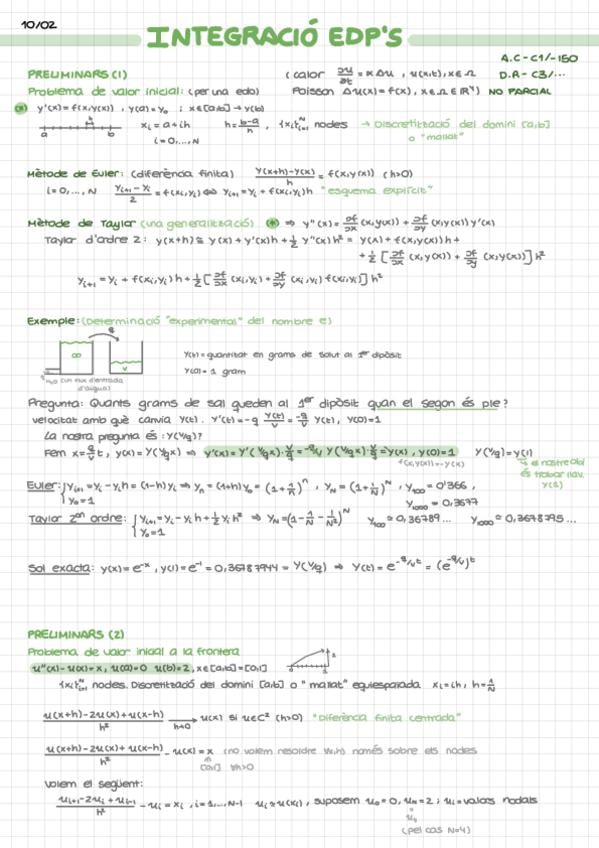 10/02
INTEGRACIÓ EDP'S
A.C - C1/-150
PRELIMINARS (1) (calor ∂u/∂t = κ Δu , u(x,t), x∈Ω D.A - C3/...
Problema de valor inicial: (per una edo) Poisson Δu(x) = f(x), x∈Ω∈ℝᴺ) NO PARCIAL
(*) y'(x) = f(x,y(x)) , y(a) = y₀ ; x∈[a,b] → y(b)
h
a b
xᵢ = a + ih h = (b-a)/n , {xᵢ}ᴺᵢ₌₁ nodes → Discretització del domini [a,b]
i = 0,..., N o "mallat"
Mètode de Euler: (diferència finita) (y(x+h) - y(x))/h = f(x,y(x)) (h>0)
i = 0,..., N (yᵢ₊₁ - yᵢ)/2 = f(xᵢ,yᵢ) ⇔ yᵢ₊₁ = yᵢ + f(xᵢ,yᵢ)h "esquema explícit"
Mètode de Taylor (una generalització) (*) ⇒ y''(x) = ∂f/∂x (x,y(x)) + ∂f/∂y (x,y(x)) y'(x)
Taylor d'ordre 2: y(x+h) ≅ y(x) + y'(x)h + 1/2 y''(x)h² = y(x) + f(x,y(x))h +
+ 1/2 [∂f/∂x (x,y(x)) + ∂f/∂y (x,y(x))] h²
yᵢ₊₁ = yᵢ + f(xᵢ,yᵢ)h + 1/2 [∂f/∂x (xᵢ,yᵢ) + ∂f/∂y (xᵢ,yᵢ) f(xᵢ,yᵢ)] h²
Exemple: (Determinació "experimental" del nombre e)
q
∞
v
Y(t) = quantitat en grams de salut al 1er dipòsit
Y(0) = 1 gram
H₂O (un flux d'entrada
d'aigua)
Pregunta: Quants grams de sal queden al 1er dipòsit quan el segon és ple?
velocitat amb què canvia Y(t). Y'(t) = -q Y(t)/V = -q/V Y(t), Y(0) = 1
La nostra pregunta és: Y(V/q)?
Fem x = q/V t, y(x) = Y(V/q x) ⇒ y'(x) = Y'(V/q x)·V/q = -q/V Y(V/q x)·V/q = -y(x), y(0) = 1 Y(V/q) = y(1)
f(x,y(x)) = -y(x) ↳ el nostre obj
és trobar llav.
y(1)
Euler: { yᵢ₊₁ = yᵢ - yᵢh = (1-h)yᵢ ⇒ yₙ = (1+h)y₀ = (1+1/n)ⁿ , y_N = (1+1/N)ᴺ , y₁₀₀ = 0'366 ,
y₀ = 1 y₁₀₀₀ = 0,3677
Taylor 2on ordre: { yᵢ₊₁ = yᵢ - yᵢh + 1/2 yᵢh² ⇒ y_N = (1 - 1/N - 1/N²)ᴺ y₁₀₀ = 0,36789... y₁₀₀₀ = 0,3678795...
y₀ = 1
Sol exacta: y(x) = e⁻ˣ , y(1) = e⁻¹ = 0,36787944 = Y(V/q) ⇒ Y(t) = e^(-q/V t) = (e^(-q/V))ᵗ
PRELIMINARS (2)
Problema de valor inicial a la frontera
u''(x) - u(x) = x, u(a) = 0 u(b) = 2, x∈[a,b] = [0,1]
{xᵢ}ᴺᵢ₌₁ nodes. Discretització del domini [a,b] o "mallat" equiespaiada xᵢ = ih, h = 1/N
(u(x+h) - 2u(x) + u(x-h))/h² →(h→0) u(x) si u∈C² (h>0) "Diferència finita centrada"
(u(x+h) - 2u(x) + u(x-h))/h² - u(x) = x (no volem resoldre ∀x,h) només sobre els nodes
[0,1] ∀h>0
Volem el següent:
(uᵢ₊₁ - 2uᵢ + uᵢ₋₁)/h² - uᵢ = xᵢ , i = 1,..., N-1 uᵢ ≈ u(xᵢ), suposem u₀ = 0, u_N = 2 ; uᵢ = valors nodals
u₄
(pel cas N=4)